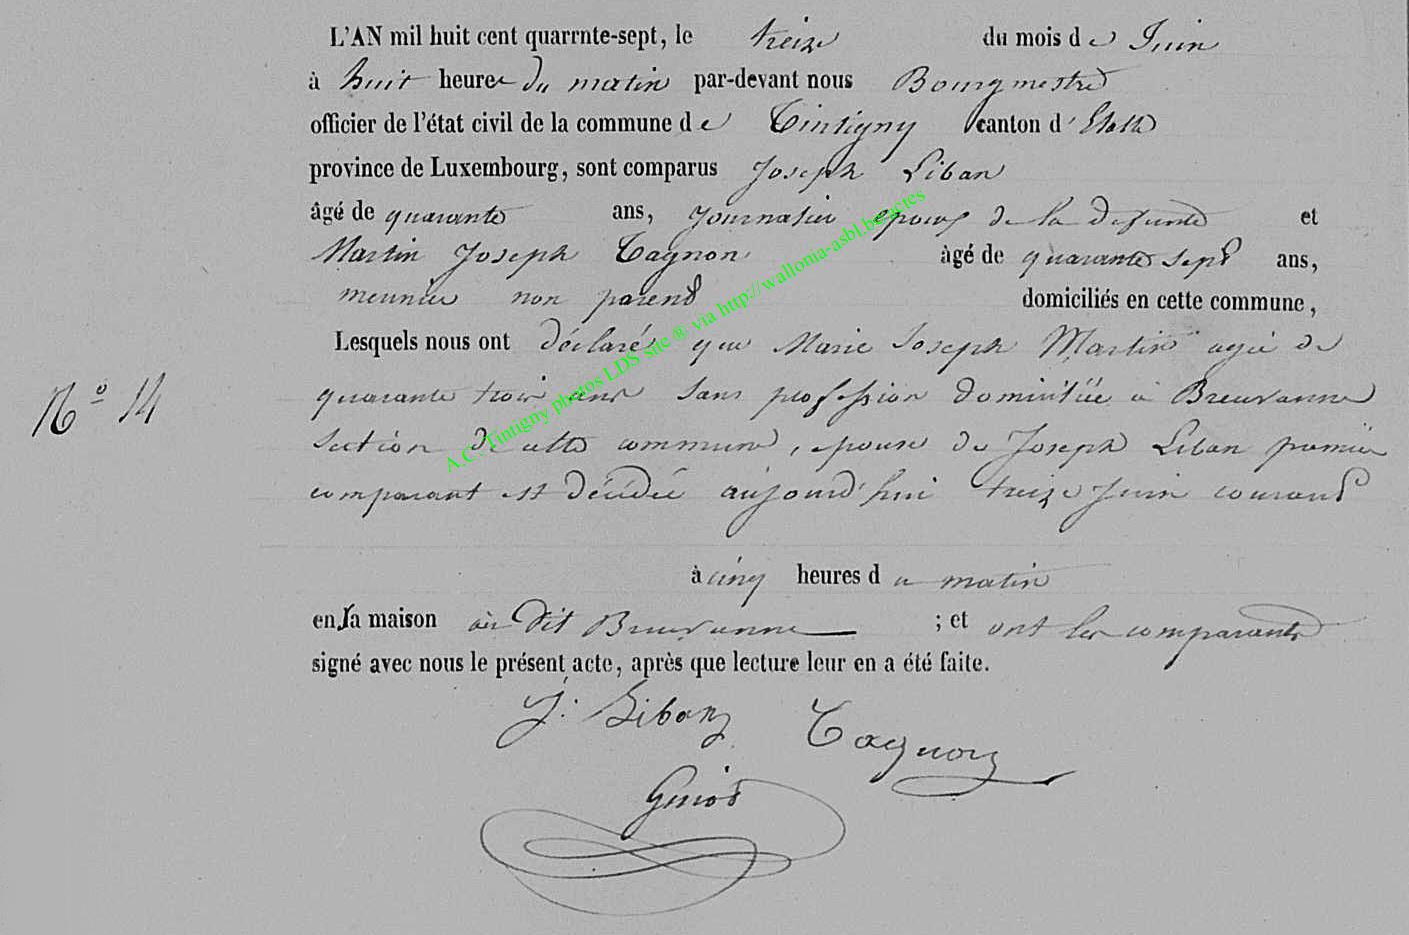 L'AN mil huit cent quarrnte-sept, le treize du mois de Juin
à huit heure du matin par-devant nous Bourgmestre
officier de l'état civil de la commune de Tintigny canton d'Etalle
province de Luxembourg, sont comparus Joseph Liban
âgé de quarante ans, journalier epoux de la defunte et
Martin Joseph Tagnon âgé de quarante sept ans,
meunier non parent domiciliés en cette commune,
Lesquels nous ont déclaré que Marie Joseph Martin agée de
quarante trois ans sans profession domiciliée à Breuvanne
N° 14
section de cette commune, epouse de Joseph Liban premier
comparant est décédée aujourd'hui treize Juin courant
à cinq heures du matin
en la maison dit Breuvanne ; et ont les comparants
signé avec nous le présent acte, après que lecture leur en a été faite.
J. Liban Tagnon
A.C. Tintigny photos LDS site ® via http://wallonia-asbl.be/actes